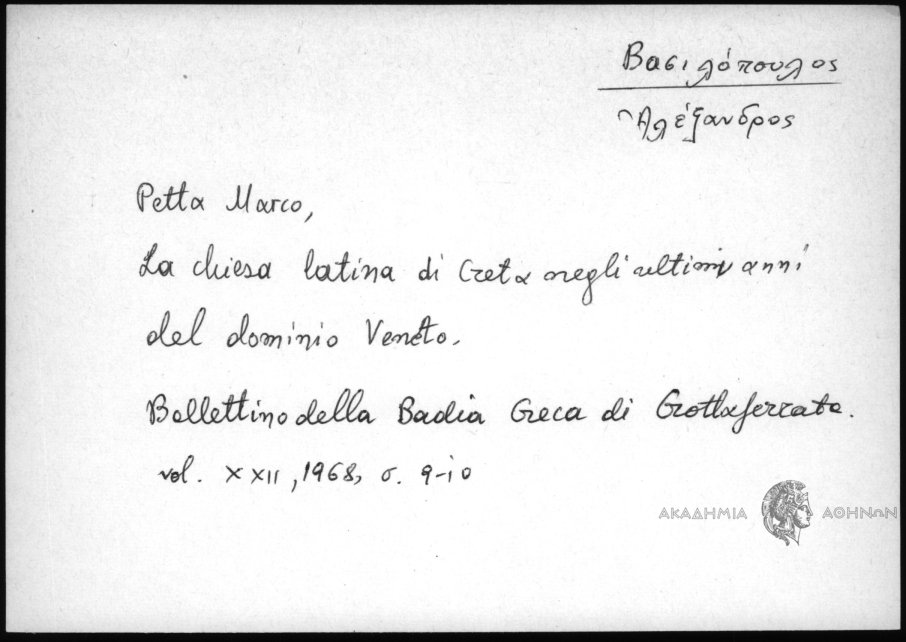 Βασιλόπουλος
Ἀλέξανδρος
Petta Marco,
La chiesa latina di Creta negli ultimi anni
del dominio Veneto.
Bollettino della Badia Greca di Grottaferrata.
vol. XXII, 1968, σ. 9-10
ΑΚΑΔΗΜΙΑ ΑΘΗΝΩΝ